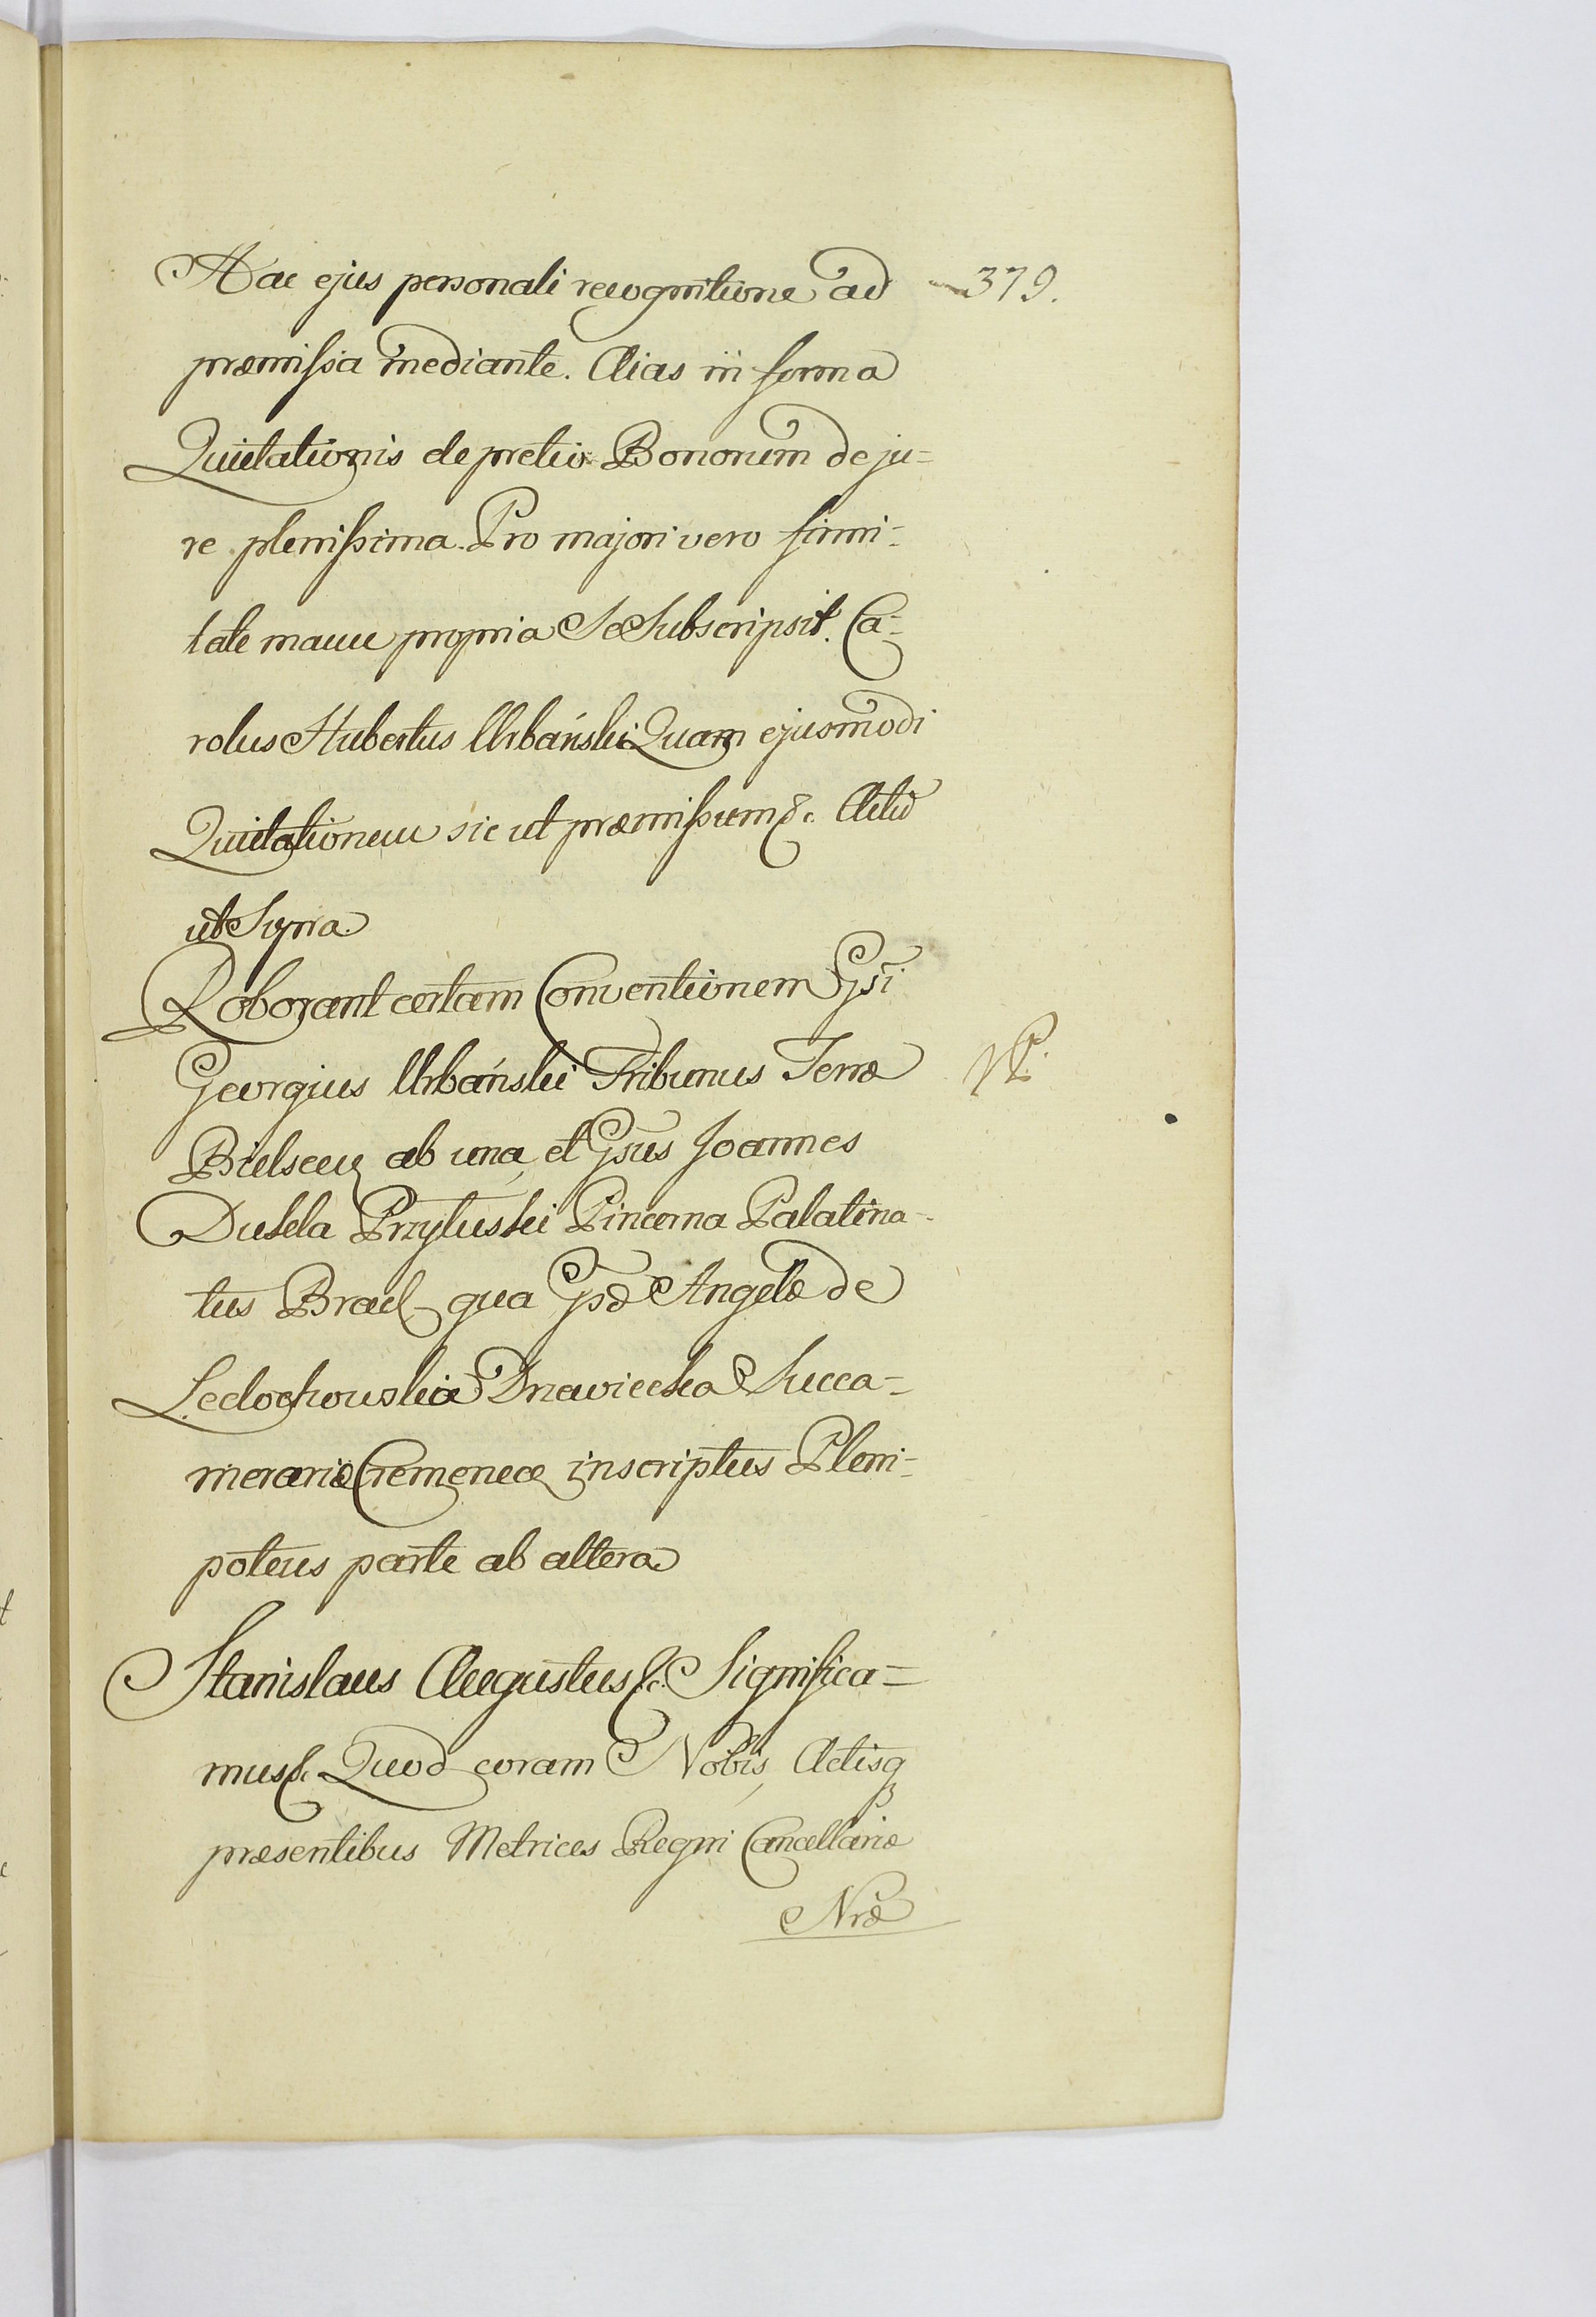 Hac ejus personali recognitione ad
379.
præmissa mediante. Alias in forma
Quietationis de pretio Bonorum de ju=
re plenissima. Pro majori vero firmi=
tate manu propria Se Subscripsit. Ca=
rolus Hubertus Urbański Quam ejusmodi
Quietationem sic ut præmissum &c. Actũ
ut Supra.
Roborant certam Conventionem Gsi
Georgius Urbański Tribunus Terræ
Bielscen ab una, et Gsus Joannes
Dukla Przyłuski Pincerna Palatina-
tus Bracl qua Gsæ Angelæ de
Ledochowskie Drzewiecka Succa=
merariæ Cremenecen inscriptus Pleni=
potens parte ab altera
Stanislaus Augustus &c. Significa=
mus &c. Quod coram Nobis, Actisq
præsentibus Metrices Regni Cancellariæ
Nræ